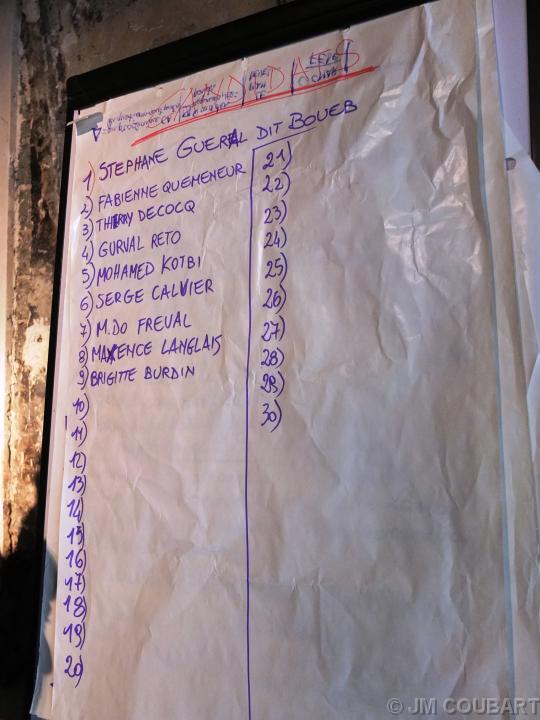 CANDIDATS
1) STEPHANE GUERAL DIT BOUEB
2) FABIENNE QUEMENEUR
3) THIERRY DECOCQ
4) GURVAL RETO
5) MOHAMED KOTBI
6) SERGE CALVIER
7) M.DO FREVAL
8) MAXENCE LANGLAIS
9) BRIGITTE BURDIN
10)
11)
12)
13)
14)
15)
16)
17)
18)
19)
20)
21)
22)
23)
24)
25)
26)
27)
28)
29)
30)
© JM COUBART